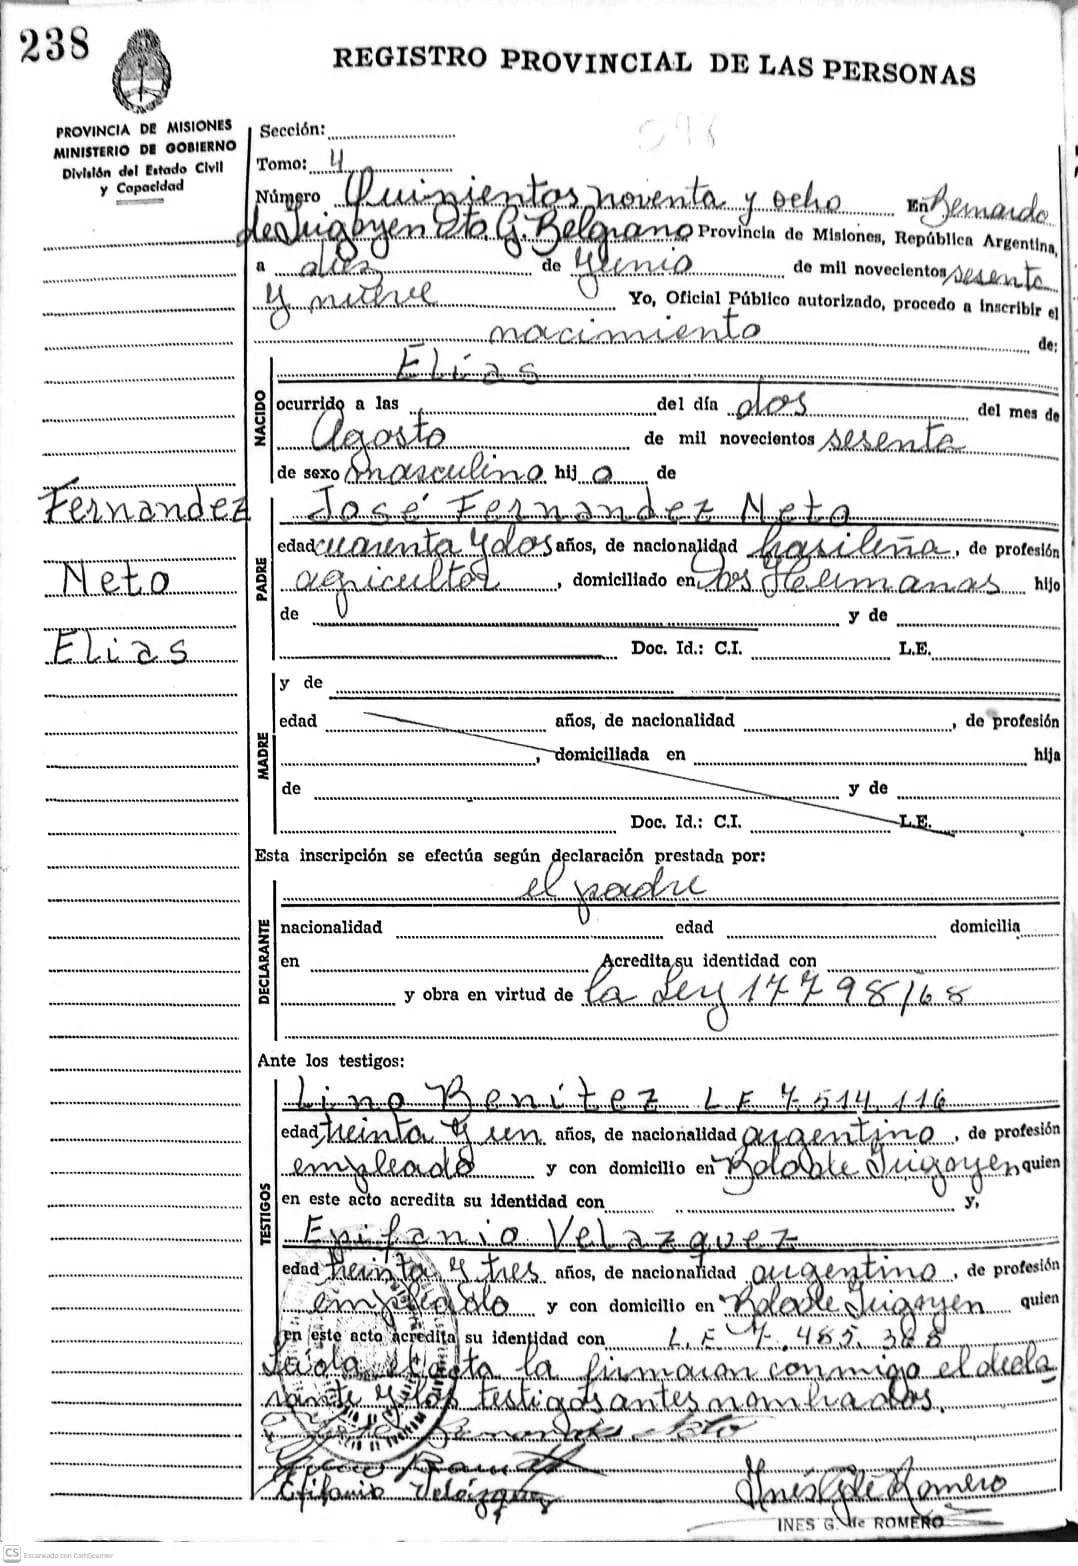 238
REGISTRO PROVINCIAL DE LAS PERSONAS
PROVINCIA DE MISIONES
MINISTERIO DE GOBIERNO
División del Estado Civil
y Capacidad
598
Sección:
Tomo: 4
Número Quinientos noventa y ocho En Bernardo
de Irigoyen Dto. G. Belgrano Provincia de Misiones, República Argentina,
a diez de Junio de mil novecientos sesenta
y nueve Yo, Oficial Público autorizado, procedo a inscribir el
nacimiento de:
NACIDO
Elías
ocurrido a las del día dos del mes de
Agosto de mil novecientos sesenta
de sexo masculino hijo de
Fernandez
Neto
Elias
PADRE
José Fernandez Neto
edad cuarenta y dos años, de nacionalidad brasileña, de profesión
agricultor, domiciliado en Dos Hermanas hijo
de y de
Doc. Id.: C.I. L.E.
MADRE
y de
edad años, de nacionalidad , de profesión
, domiciliada en hija
de y de
Doc. Id.: C.I. L.E.
Esta inscripción se efectúa según declaración prestada por:
DECLARANTE
el padre
nacionalidad edad domicilia
en Acredita su identidad con
y obra en virtud de la Ley 17798/68
Ante los testigos:
TESTIGOS
Lino Benítez L E 7.514.116
edad treinta y un años, de nacionalidad argentino, de profesión
empleado y con domicilio en Bdo de Irigoyen quien
en este acto acredita su identidad con y,
Epifanio Velazquez
edad treinta y tres años, de nacionalidad argentino, de profesión
empleado y con domicilio en Bdo de Irigoyen quien
en este acto acredita su identidad con L. E 7.485.368
Leída el acta la firmaron conmigo el decla
rante y los testigos antes nombrados.
Epifanio Velázquez
Inés G de Romero
INES G. de ROMERO
CS Escaneado con CamScanner